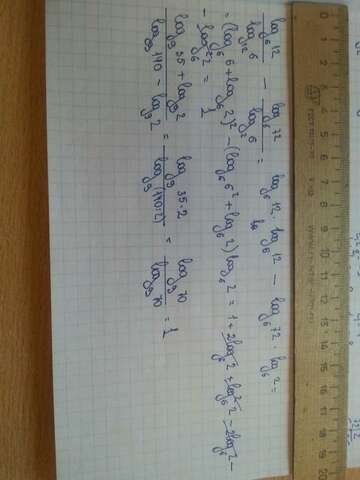 log₆12 / log₁₂6 − log₆72 / log 6 = log₆12 · log₆12 − log₆72 · log₆2 =
= (log₆6 + log₆2)² − (log₆6² + log₆2) log₆2 = 1 + 2log₆2 + log₆²2 − 2log₆2 −
− log₆²2 = 1
log₉35 + log₉2 / log₉140 − log₉2 = log₉35·2 / log₉(140:2) = log₉70 / log₉70 = 1
0 1 2 3 4 5 6 7 8 9 10 11 12 13 14 15 16 17 18 19 20